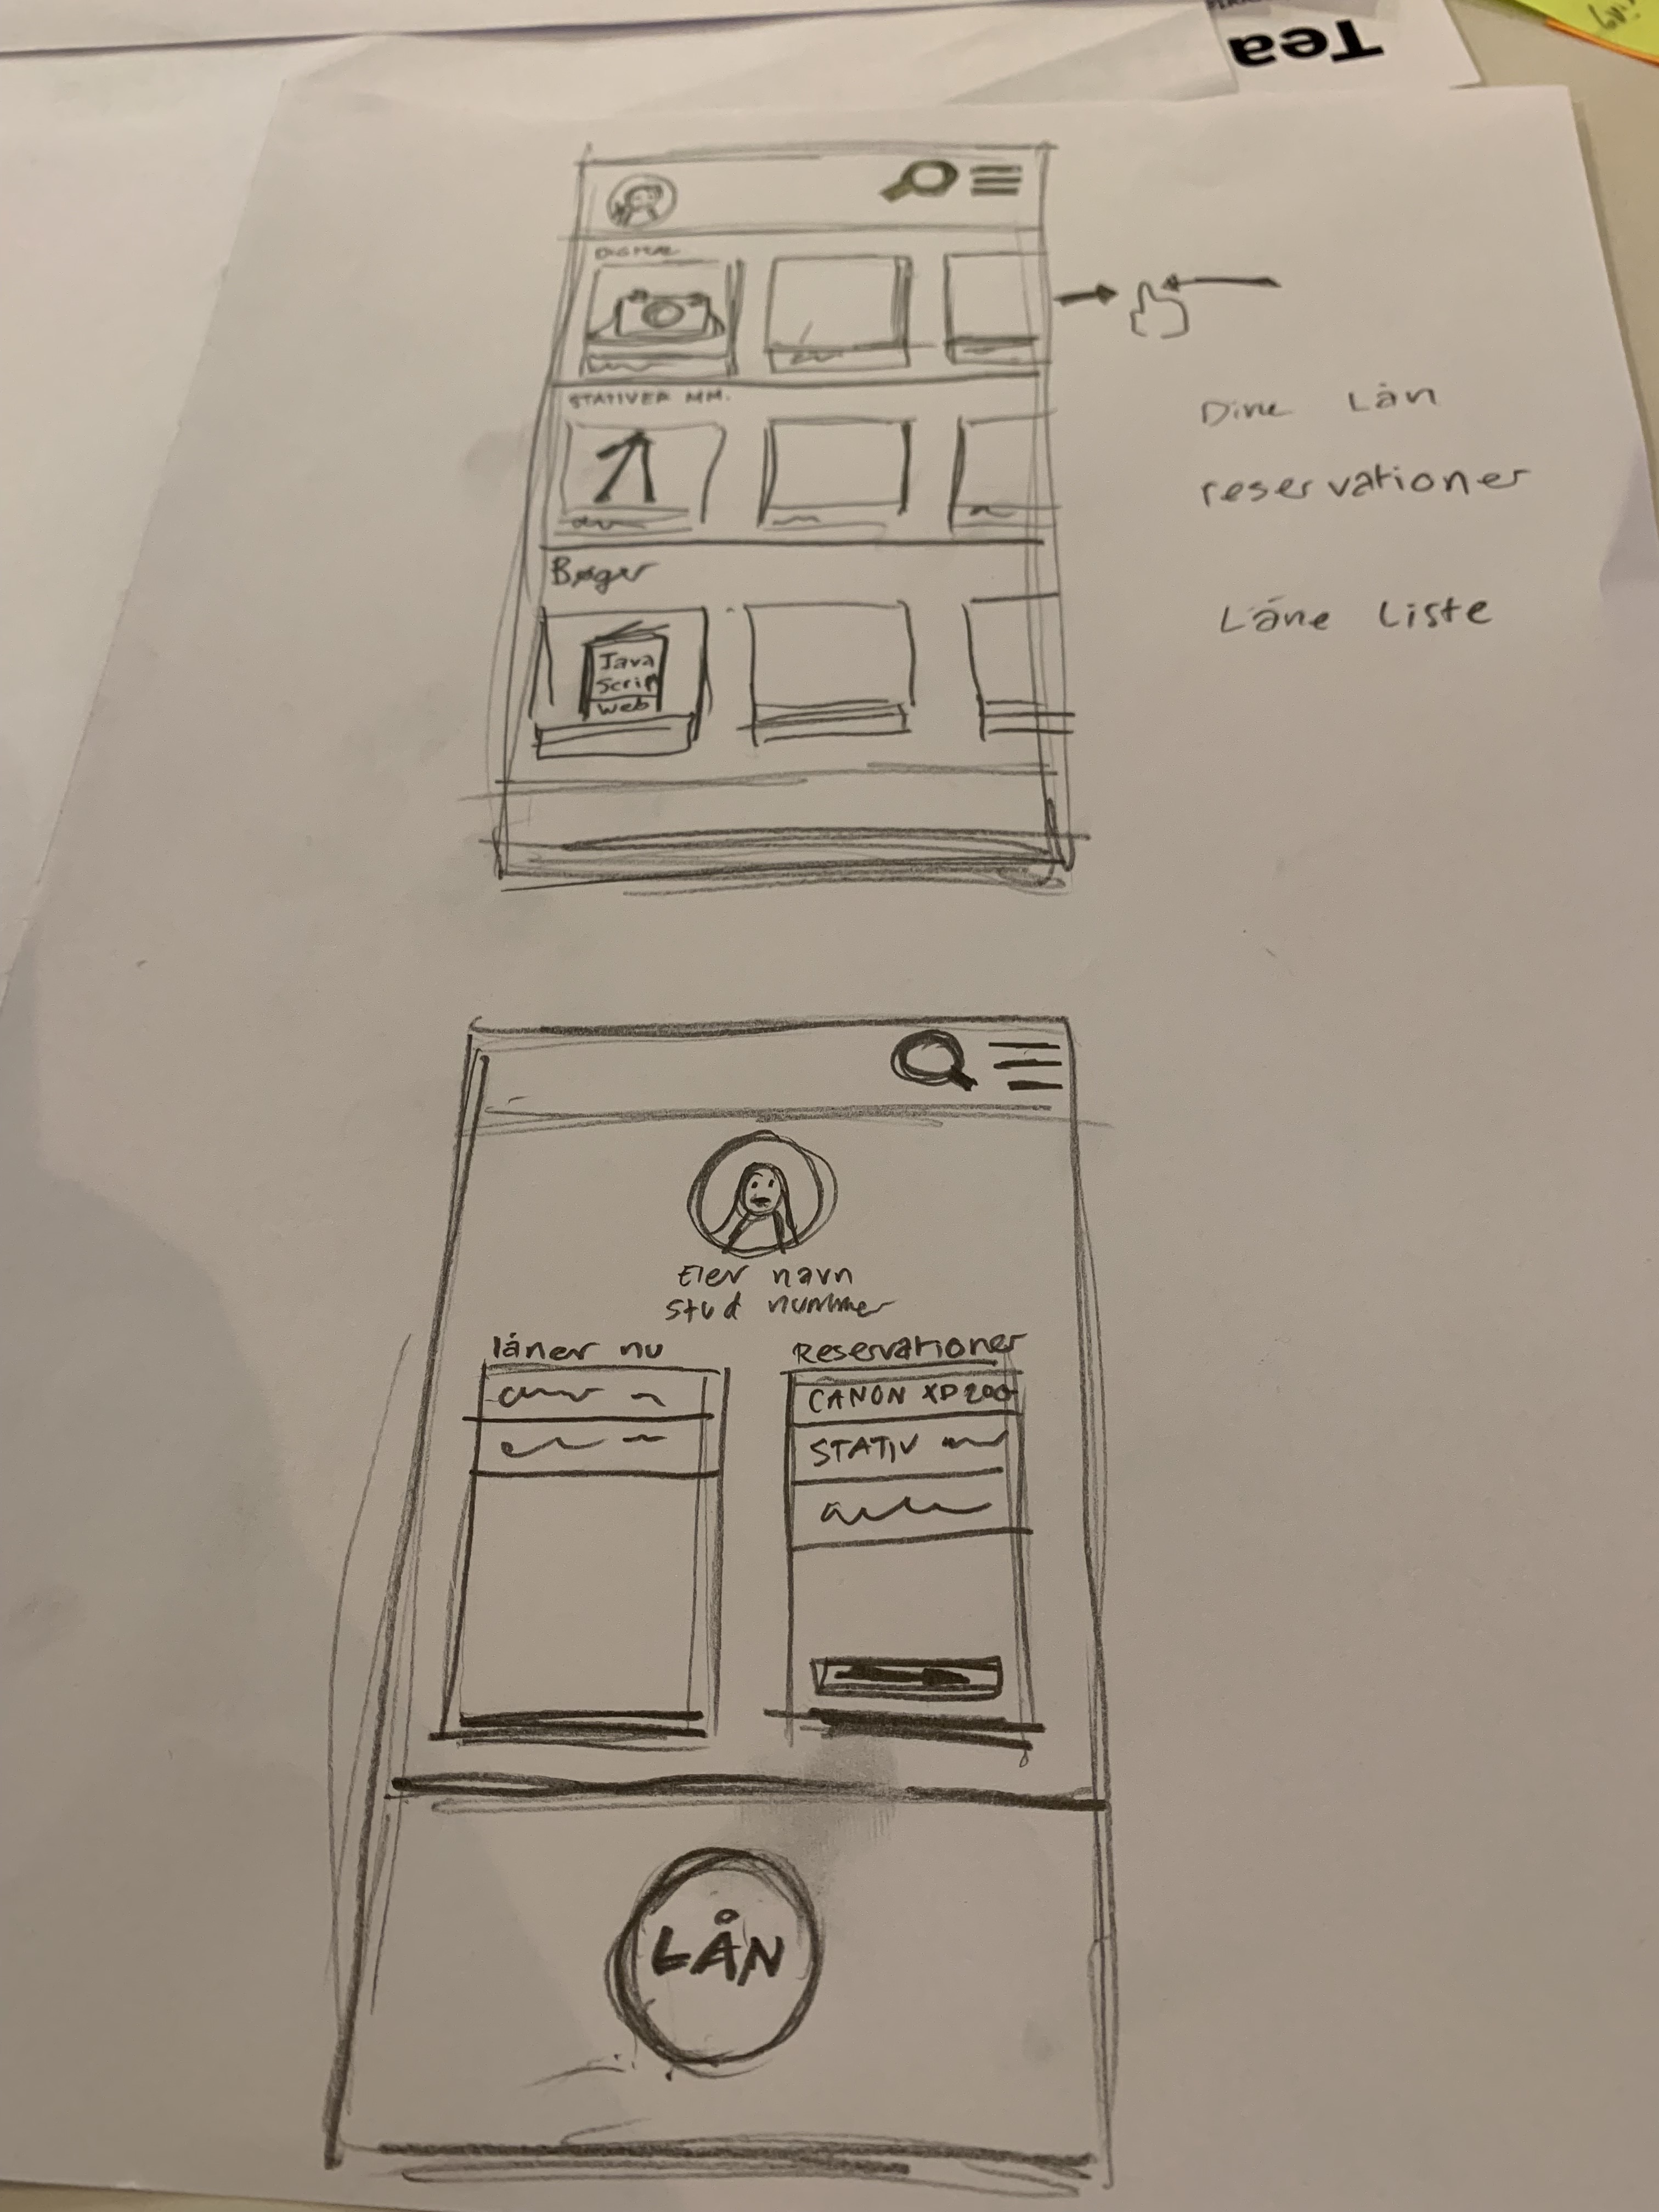 Tea
DIGITAL
STATIVER MM.
Bøger
Java
Scrip
Web
Dine Lån
reservationer
Låne Liste
Elev navn
stud nummer
låner nu
Reservationer
CANON XP200
STATIV
LÅN